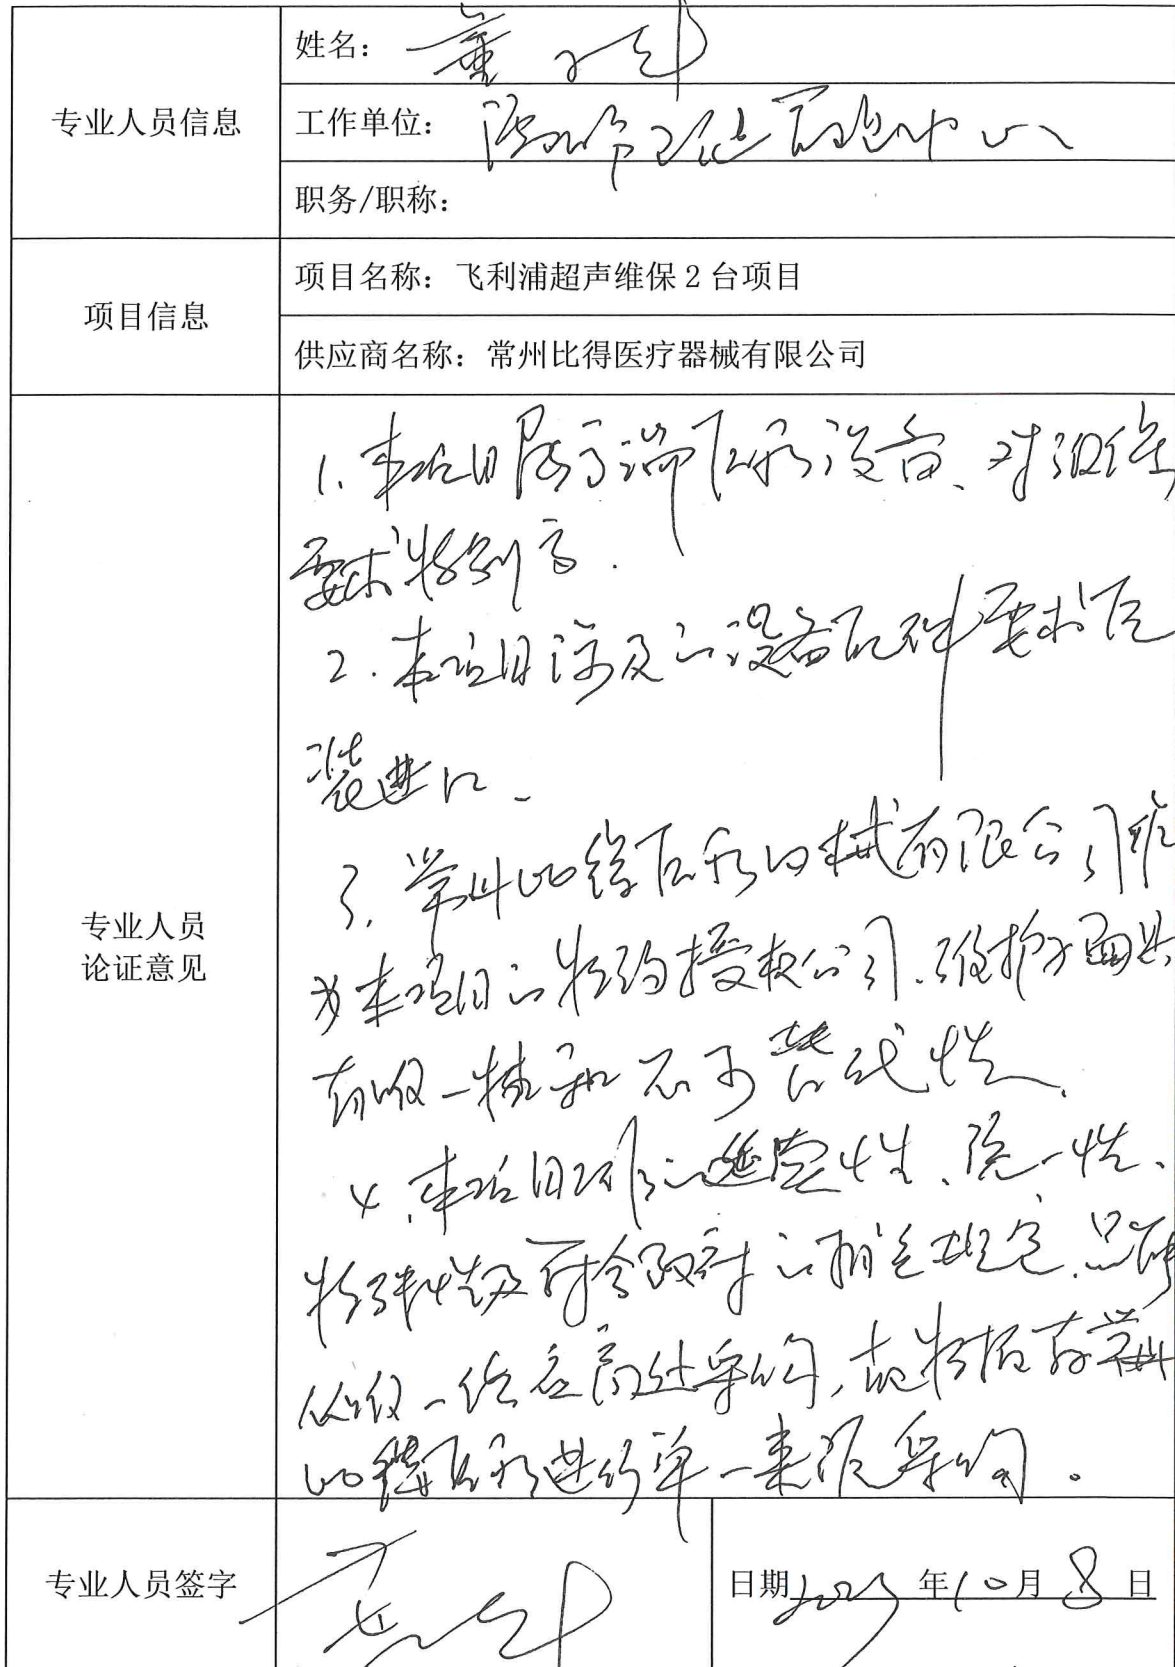 专业人员信息
姓名：
工作单位： 中心
职务/职称：
项目信息
项目名称：飞利浦超声维保2台项目
供应商名称：常州比得医疗器械有限公司
专业人员
论证意见
1、本项目属高端医疗设备、对维保
要求特别高．
2．本项目涉及的设备配件要求原
装进口．
3．常州比得医疗器械有限公司作
为本项目的特约授权公司．维护方面具
有唯一性和不可替代性．
4．本项目 性、统一性、
特殊性及符合政府的相关规定．只能
从唯一供应商处采购，故 常州
比得医疗进行单一来源采购。
专业人员签字
日期2023年10月8日